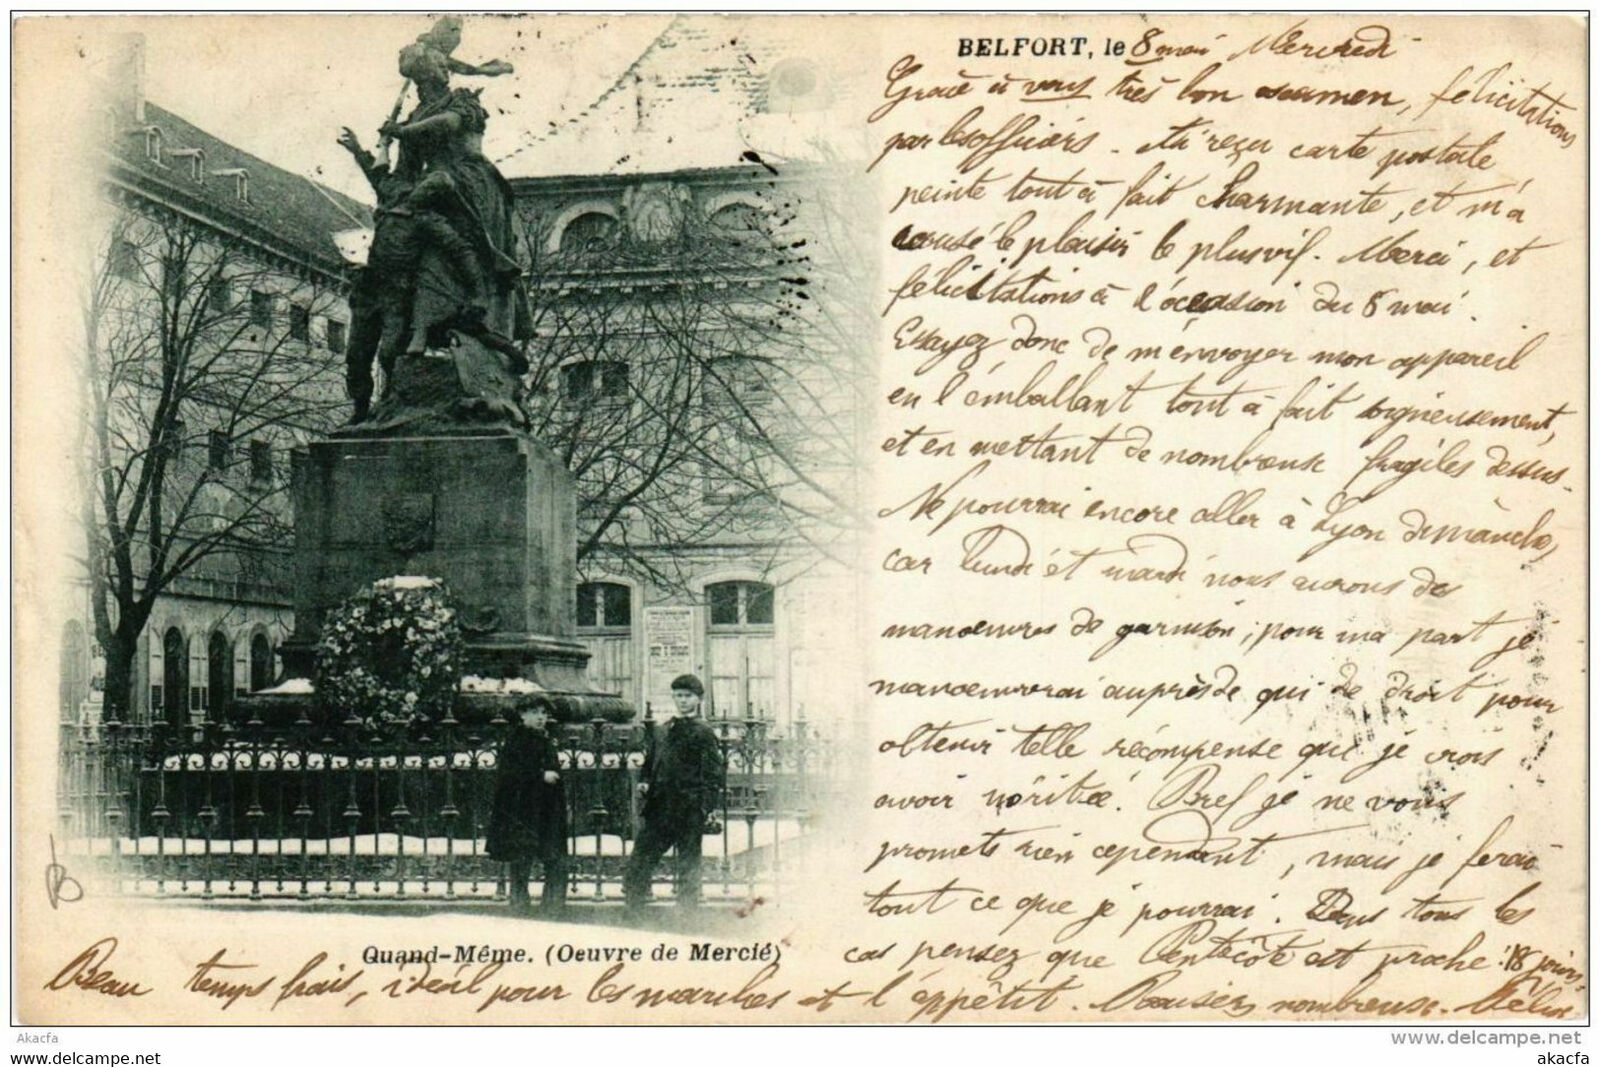 BELFORT, le 8 mai Mercredi
Grâce à vous très bon examen, félicitations
par les officiers. Ai reçu carte postale
peinte tout à fait charmante, et m'a
causé le plaisir le plus vif. Merci, et
félicitations à l'occasion du 8 mai.
Essayez donc de m'envoyer mon appareil
en l'emballant tout à fait soigneusement,
et en mettant de nombreux fragiles dessus.
Ne pourrai encore aller à Lyon dimanche,
car lundi et mardi nous aurons des
manoeuvres de garnison; pour ma part je
manoeuvrerai auprès de qui de droit pour
obtenir telle récompense que je crois
avoir méritée. Bref je ne vous
promets rien cependant, mais je ferai
tout ce que je pourrai. Dans tous les
cas pensez que Pentecôte est proche: 18 jours.
Quand-Même. (Oeuvre de Mercié)
Beau temps frais, idéal pour les marches et l'appétit. Baisers nombreux. Félix
Akacfa
delcampe.net
www.delcampe.net
akacfa